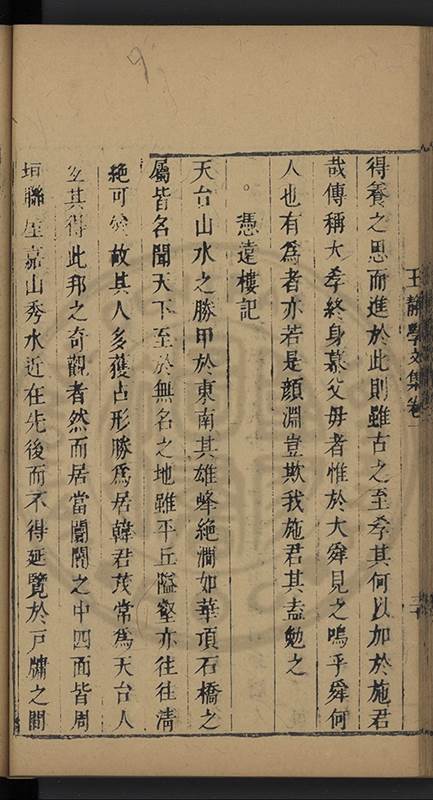 王靜學文集卷一
得養之思而進於此則雖古之至孝其何以加於施君
哉傳稱大孝終身慕父母者惟於大舜見之嗚乎舜何
人也有為者亦若是顔淵豈欺我施君其盍勉之
憑遠樓記
天台山水之勝甲於東南其雄峰絶澗如華頂石橋之
屬皆名聞天下至於無名之地雖平丘隘壑亦往往淸
絶可 故其人多獲占形勝爲居韓君茂常爲天台人
 其得此邦之奇觀者然而居當闤闠之中四面皆周
垣聯屋嘉山秀水近在先後而不得延覽於戸牖之間